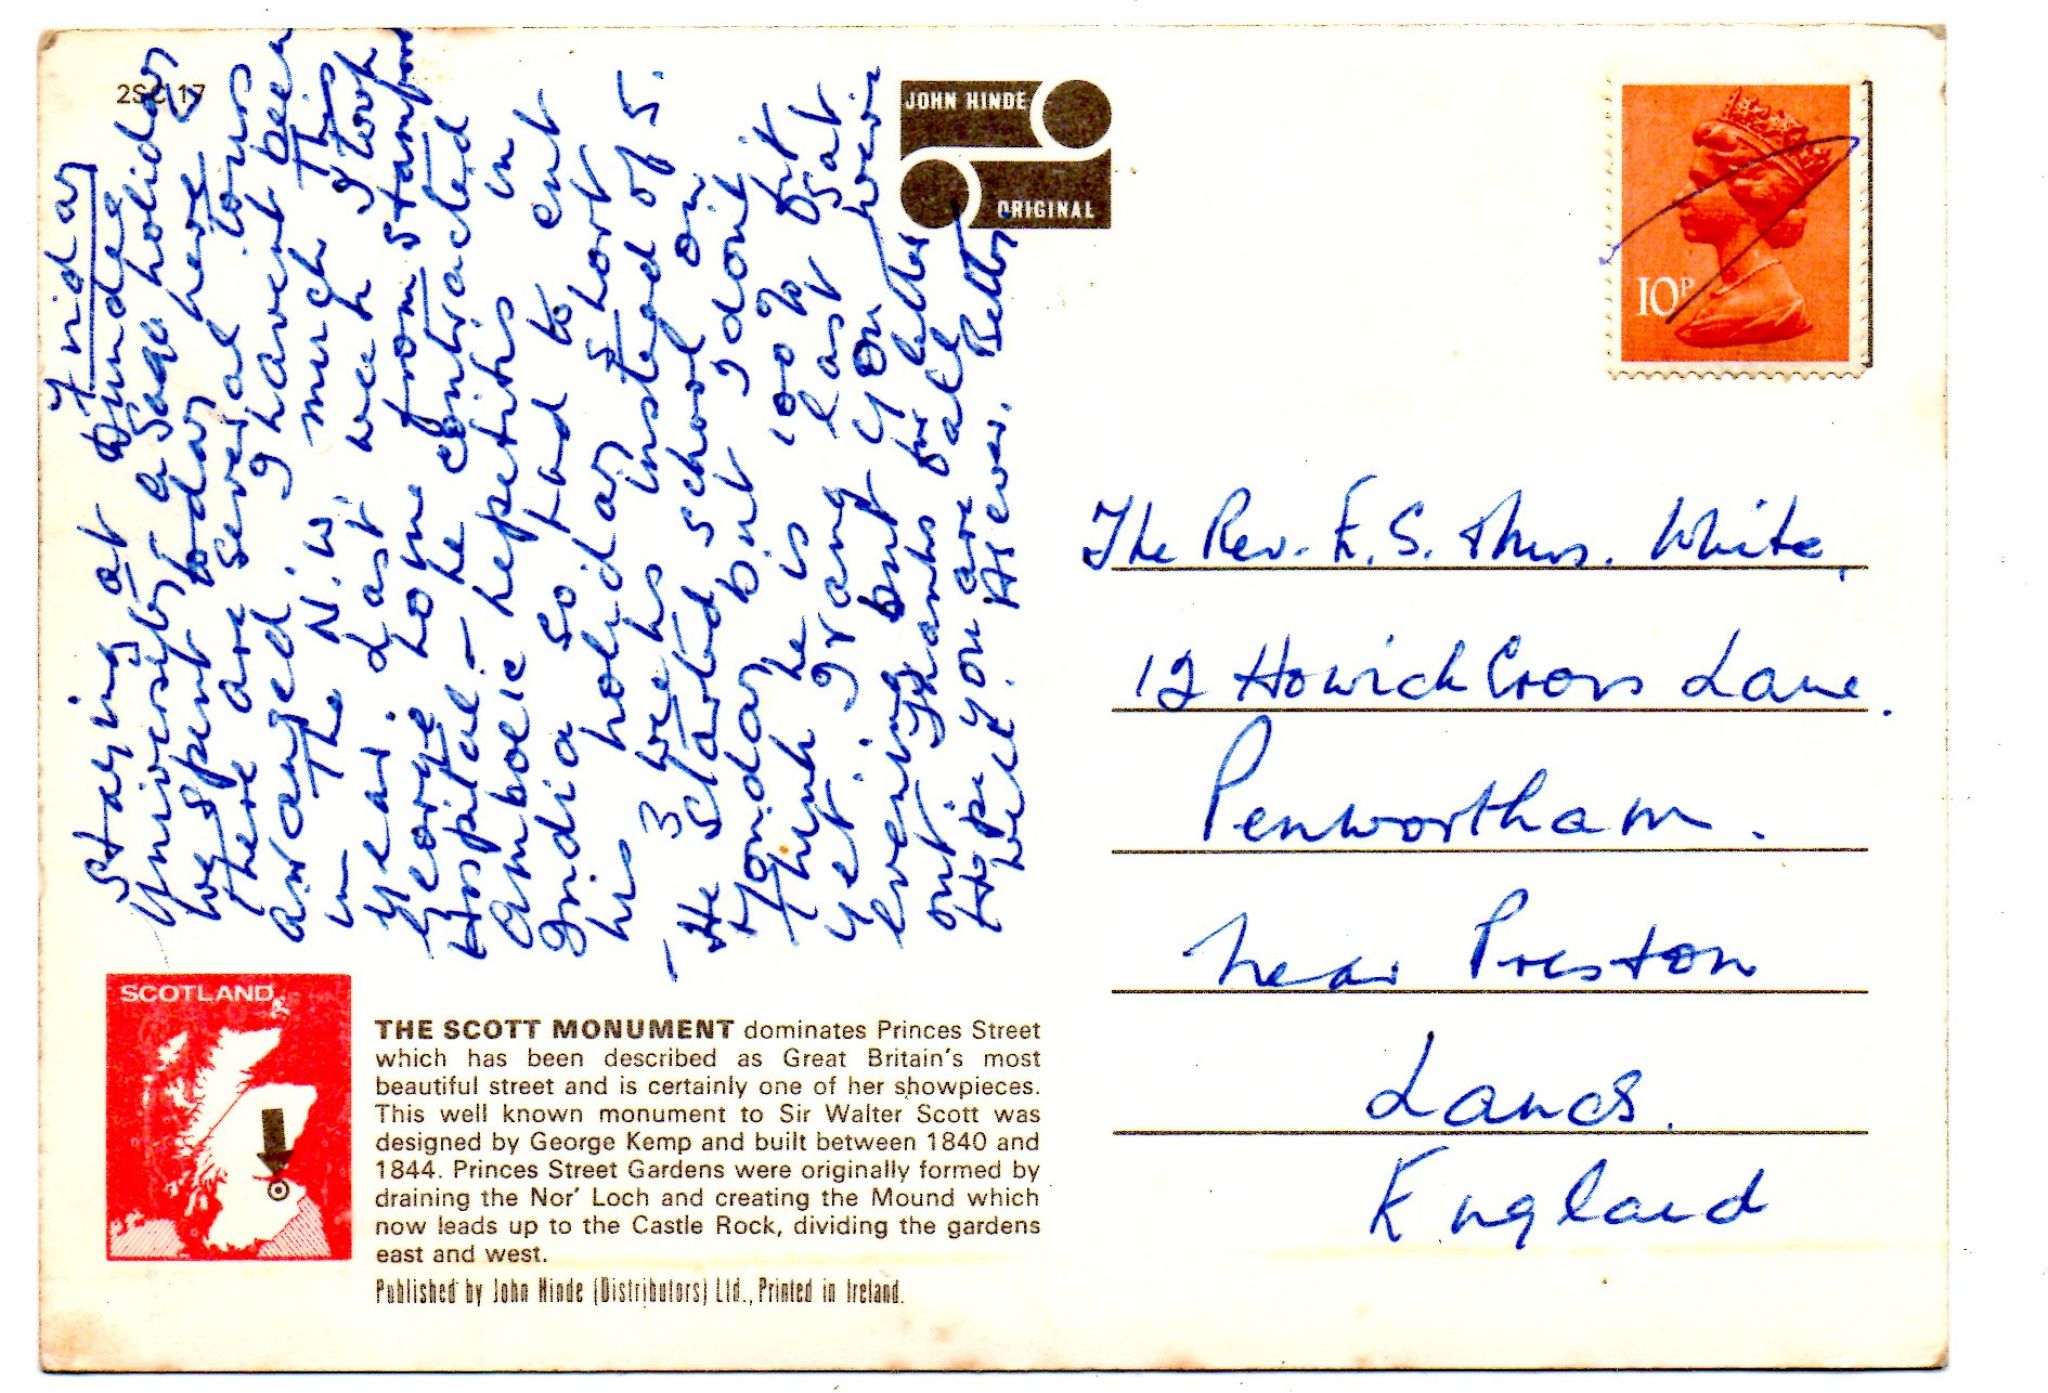 2SC 17
Friday
Staying at Dundee
University, a Saga holiday
we spent today here
there are several tours
arranged. I havent been
in the N.W. much this
year. Last week I took
George home from Stamford
Hospital - he contracted
amboeic hepetitis in
India so had to cut
his holiday short
3 weeks instead of 5.
He started school on
Monday but I dont
think he is 100% fit
yet. I rang last Sat
evening but you were
out. Thanks for letter
Hope you are all
well. As ever. Betty.
JOHN HINDE
ORIGINAL
10P
The Rev. E. S. Thos. White,
12 Howick Cross Lane.
Penwortham.
near Preston
Lancs.
England
SCOTLAND
THE SCOTT MONUMENT dominates Princes Street
which has been described as Great Britain's most
beautiful street and is certainly one of her showpieces.
This well known monument to Sir Walter Scott was
designed by George Kemp and built between 1840 and
1844. Princes Street Gardens were originally formed by
draining the Nor' Loch and creating the Mound which
now leads up to the Castle Rock, dividing the gardens
east and west.
Published by John Hinde (Distributors) Ltd., Printed in Ireland.